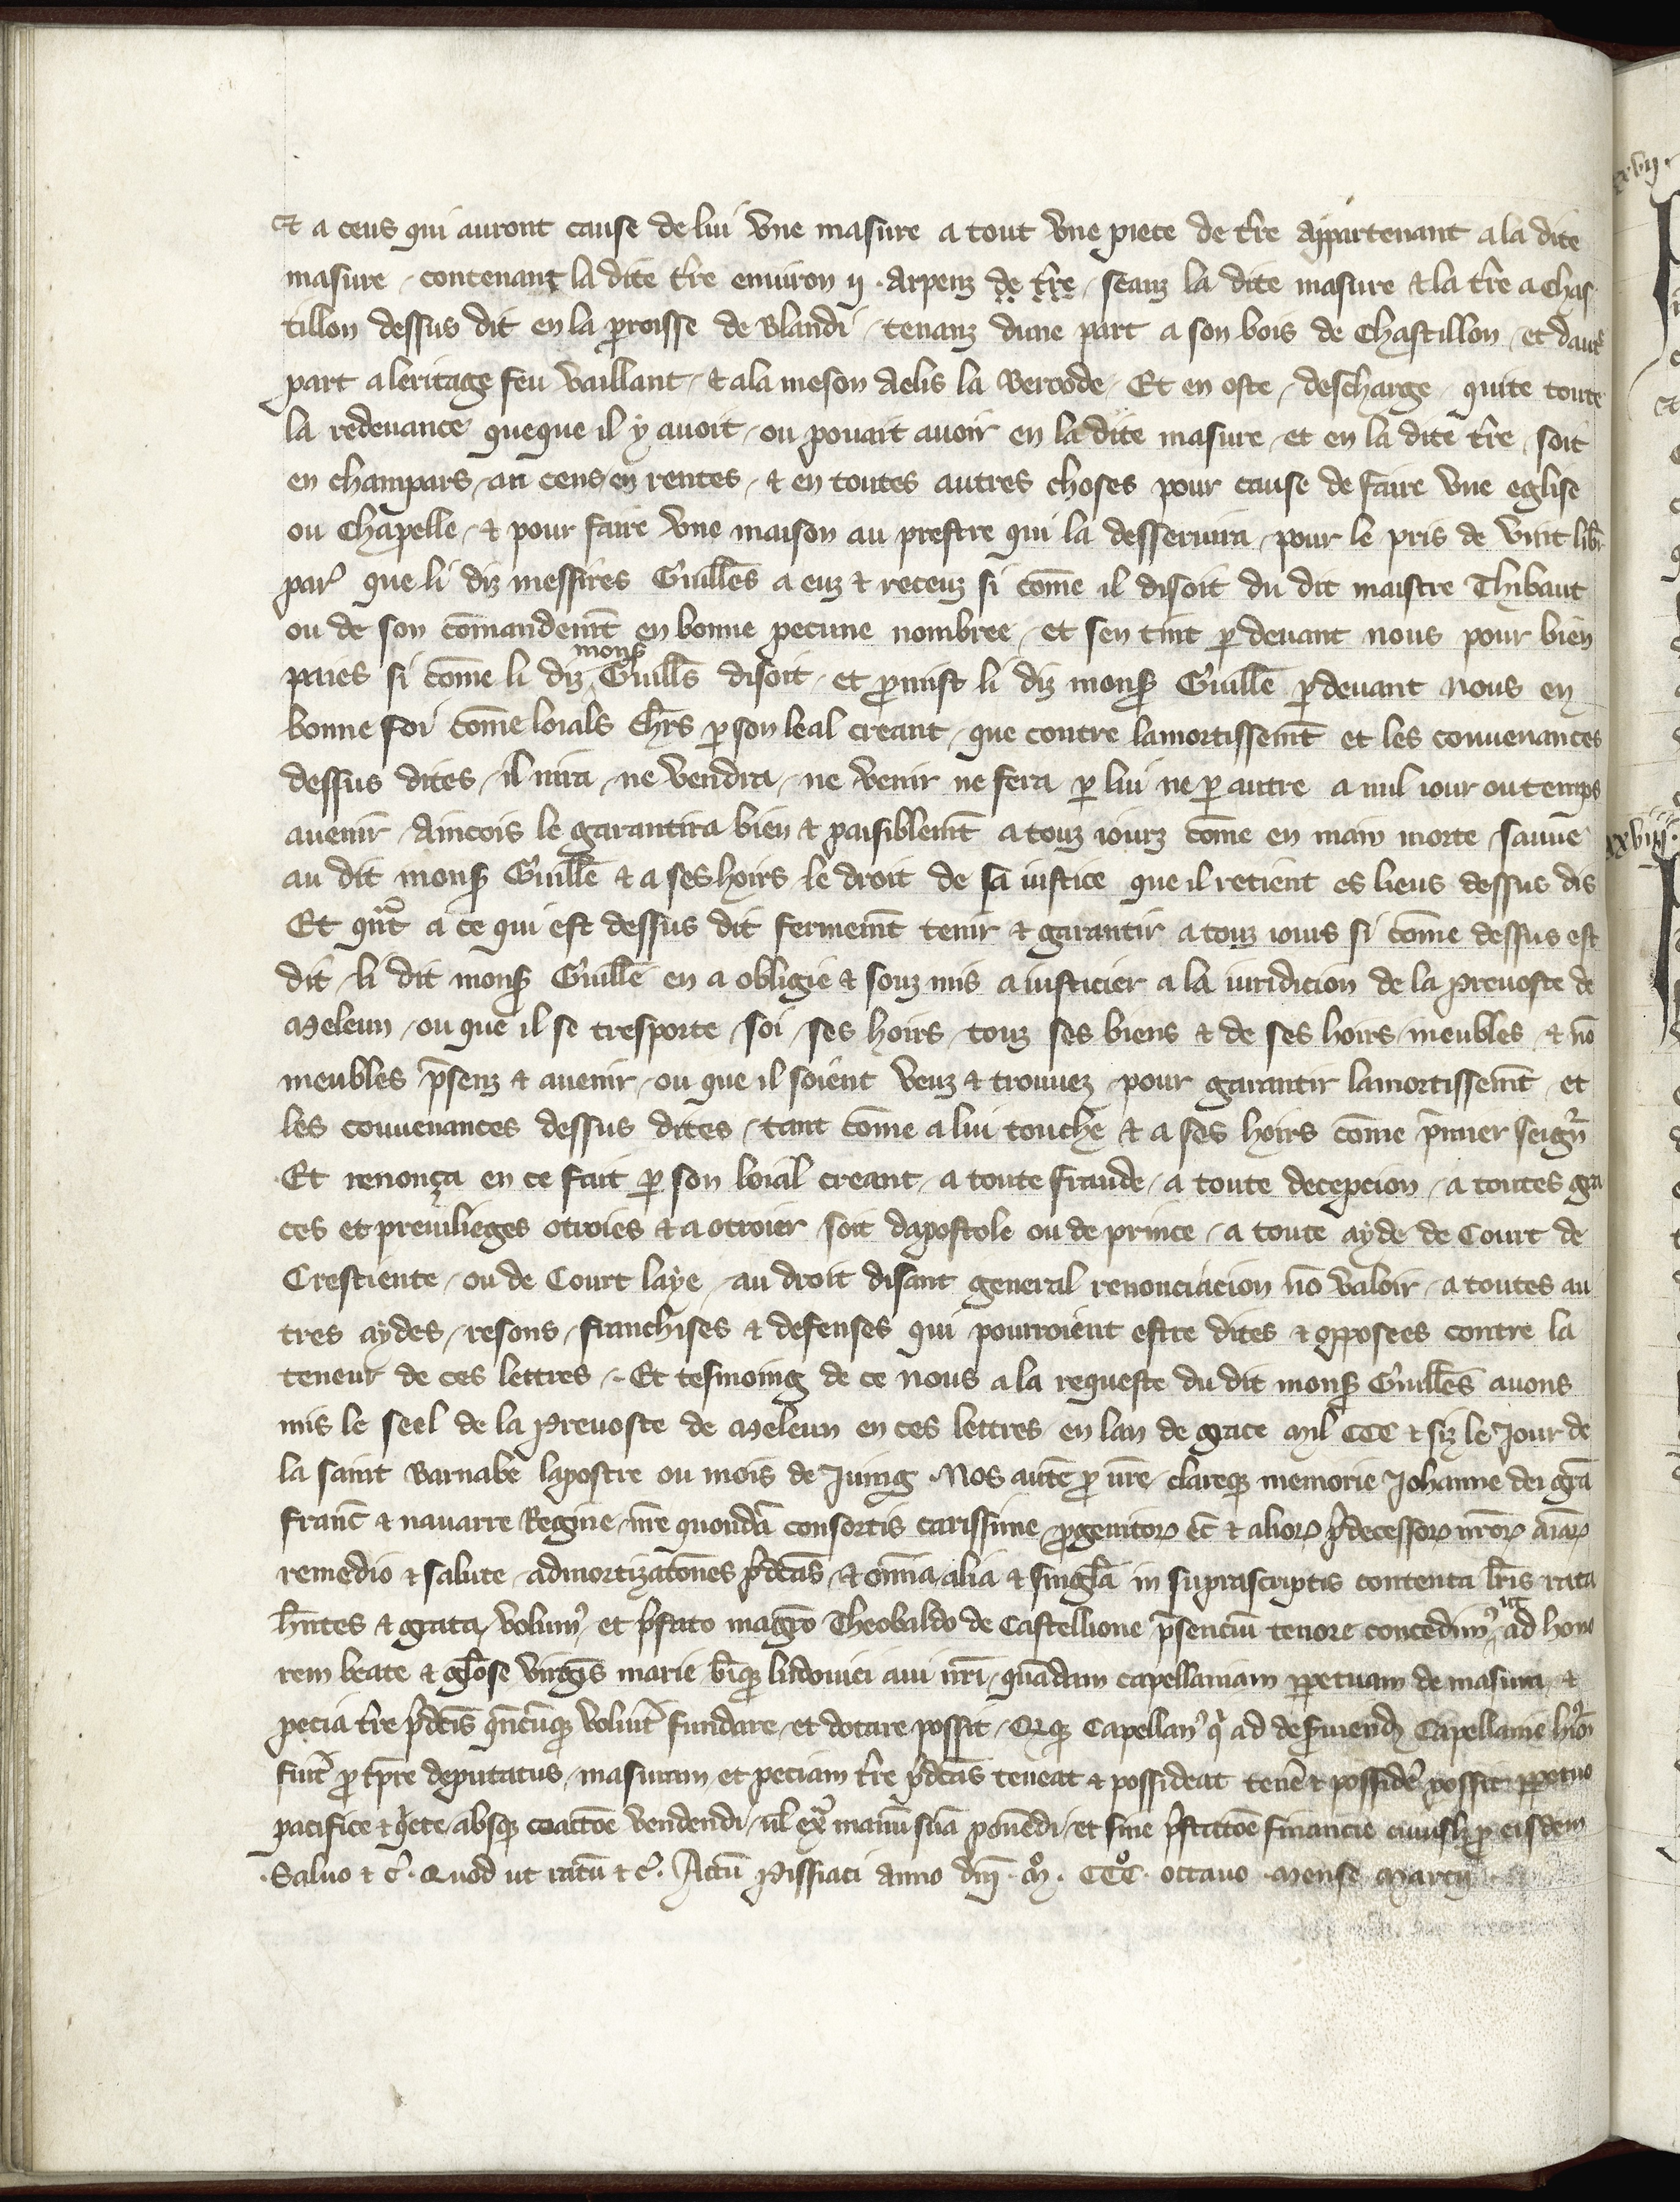 et a ceus qui auront cause de lui vne masure a tout vne piece de tr̄e appartenant a la dite
masure / contenanz la dite tr̄e enuiron ij . arpenz de tr̄e / seanz la dite masure et la tr̄e a Chas
tillon dessus dit en la ꝑroisse de Blandi / tenanz dune part a son bois de Chastillon / et dautˢ
part a leritage feu vaillant / et a la meson aelis la Bercode / Et en oste / descharge / quite toute
la redeuance queque il y auoit / ou pouait auoir en la dite masure / et en la dite tr̄e / soit
en champars / an cens / en rentes / et en toutes autres choses pour cause de faire vne eglise
ou Chapelle / et pour faire vne maison au prestre qui la desseruira / pour le pris de vint libr̄
par̓ que li diz messires Guill̄es a euz et receuz si com̄e il disoit du dit maistre Thibaut
ou de son com̄andem̄t en bonne pecune nombree / et sen tint ꝑ deuant nous pour bien
paies si com̄e li diz monsꝭ Guill̄s disoit / et ꝓmist li diz monsꝭ Guill̄e ꝑdeuant nous en
bonne foi com̄e loials Ch̄rs ꝑ son leal creant / que contre lamortissem̄t et les conuenances
dessus dites / il nira / ne vendra / ne venir ne fera ꝑ lui ne ꝑ autre a nul iour ou temps
auenir / aincois le garantira bien et paisiblem̄t a touz iourz com̄e en main morte / sauue
au dit monsꝭ Guill̄e et a ses hoirs le droit de sa iustice que il retient es lieus dessus dis
Et qᵃnt a ce qui est dessus dit fermem̄t tenir et garantir a touz iours si com̄e dessus est
dit / li dit monsꝭ Guill̄e en a obligie et souz mis a iusticier a la iuridicion de la preuoste de
Meleun / ou que il se tresporte / soi / ses hoirs / touz ses biens et de ses hoirs / meubles / et nō
meubles p̄senz et auenir / ou que il soient veuz et trouuez / pour garantir lamortissem̄t / et
les conuenances dessus dites / tant com̄e a lui touche et a ses hoirs com̄e p̄mier seign̄r
Et renonça en ce fait ꝑ son loial creant / a toute fraude / a toute decepcion / a toutes gra
ces et preuilieges otroies et a otroier soit dapostole ou de prince / a toute ayde de Court de
Crestiente / ou de Court laye / au droit disant general renonciacion nō valoir / a toutes au
tres aydes / resons / franchises et defenses qui pourroient estre dites et opposees contre la
teneur de ces lettres / Et tesmoing de ce nous a la requeste du dit monsꝭ Guill̄es auons
mis le seel de la Preuoste de Meleun en ces lettres / en lan de grace mil CCC et siz le Jour de
la saint Barnabe lapostre ou mois de Juing . Nos autē ꝓ nr̄e clareqꝫ memorie Johanne dei gr̄a
Franc̄ et nauarre Regine / nr̄e quondā consortis carissime / ꝓgenitoꝝ et̄ et alioꝝ p̄decessoꝝ nr̄oꝝ aīaꝝ
remedio et salute / admortizatōnes p̄dc̄as / et om̄ia alia et singl̄a in suprascriptis contenta lr̄is rata
hn̄tes et grata volum⁹ et p̄fato magr̄o Theobaldo de Castellione p̄senciū tenore concedim⁹ ut ad hono
rem beate et gl̄ose virgīs marie / bīqꝫ ludouici aui nr̄i / quādam capellaniam ꝑpetuam de masura / et
pecia tr̄e p̄dc̄is qn̄cūqꝫ voluit̓ fundare / et dotare possit / Qꝫqꝫ Capellan⁹ q̄ ad deseruiendꝫ Capellanie hm̄oi
fuit̓ ꝓ tp̄re deputatus / masuram et peciam tr̄e p̄dc̄as teneat et possideat tenē et possidē possit ꝑpetuo
pacifice et quiete absqꝫ coactōe vendendi / ul̄ exᵃ manū suā ponēdi / et sine p̄statōe financie cuiuslꝫ ꝓ eisdem
Saluo et c̓. Quod ut ratū et c̓. Actū Pissiaci anno dn̄i . M°. CCC° . octauo . mense marcij